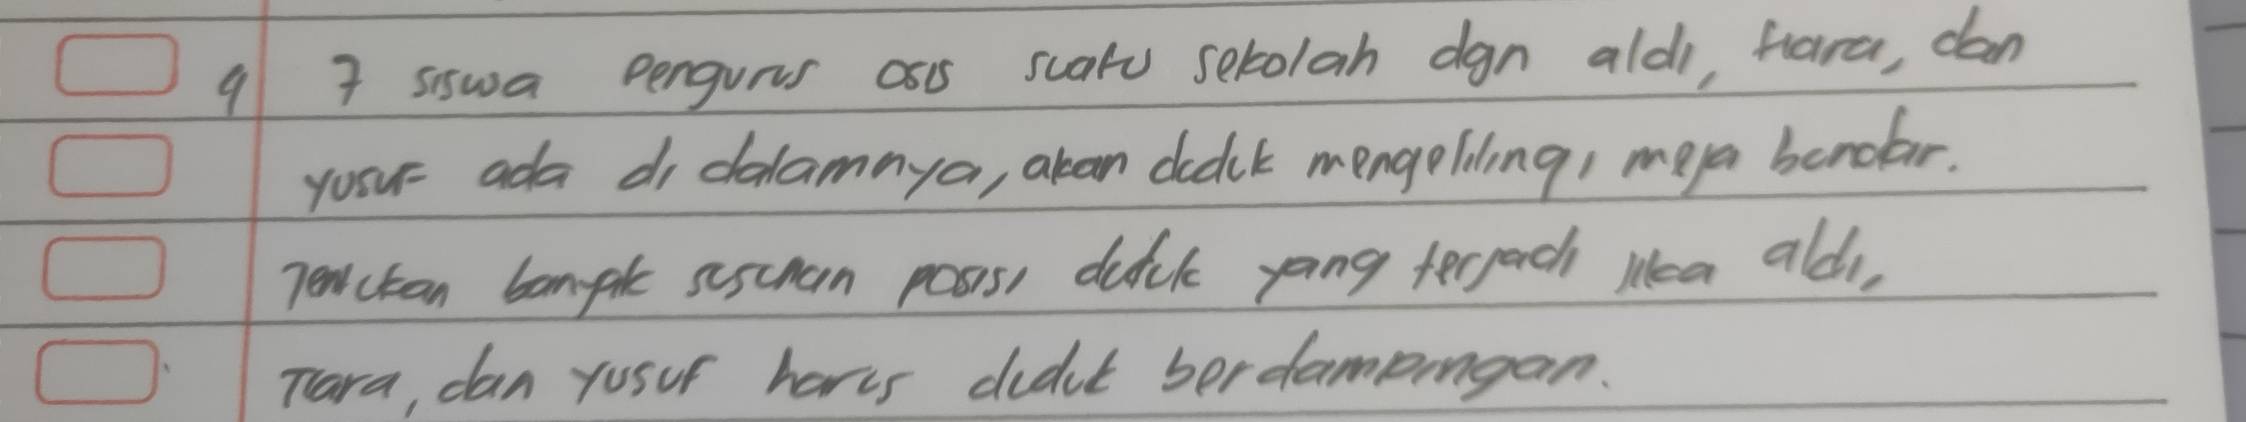 9 7 siswa pengurus osis suatu sekolah dgn aldi, tiara, dan
yusuf ada di dalamnya, akan duduk mengelilingi meja bundar.
Tentukan banyak susunan posisi duduk yang terjadi jika aldi,
Tiara, dan yusuf harus duduk berdampingan.